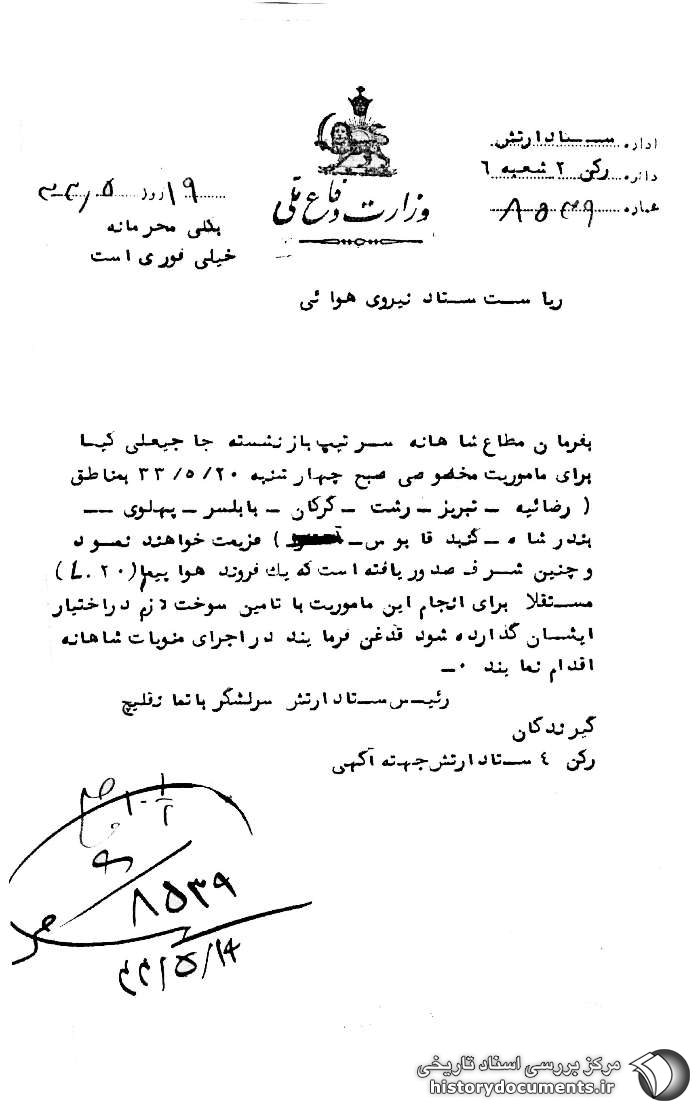 اداره ستاد ارتش
دائره رکن ۲ شعبه ۶
شماره ۸۵۳۹
وزارت دفاع ملی
۱۹ روز ۵ ر ۳۳
بکلی محرمانه
خیلی فوری است
ریاست ستاد نیروی هوائی
بفرمان مطاع شاهانه سرتیپ بازنشسته حاجیعلی کیا
برای ماموریت مخصوصی صبح چهارشنبه ۳۳/۵/۲۰ بمناطق
( رضائیه ــ تبریز ــ رشت ــ گرگان ــ بابلسر ــ پهلوی ــ
بندر شاه ــ گنبد قابوس ــ ) عزیمت خواهند نمود
و چنین شرف صدور یافته است که یك فروند هواپیما (L.۲۰)
مستقلا برای انجام این ماموریت با تامین سوخت لازم در اختیار
ایشان گذارده شود قدغن فرمایند در اجرای منویات شاهانه
اقدام نمایند ۰ــ
رئیس ستاد ارتش سرلشگر باتمانقلیچ
گیرندگان
رکن ٤ ستاد ارتش جهته آگهی
۸۵۳۹
۳۳/۵/۱۹
مرکز بررسی اسناد تاریخی
historydocuments.ir